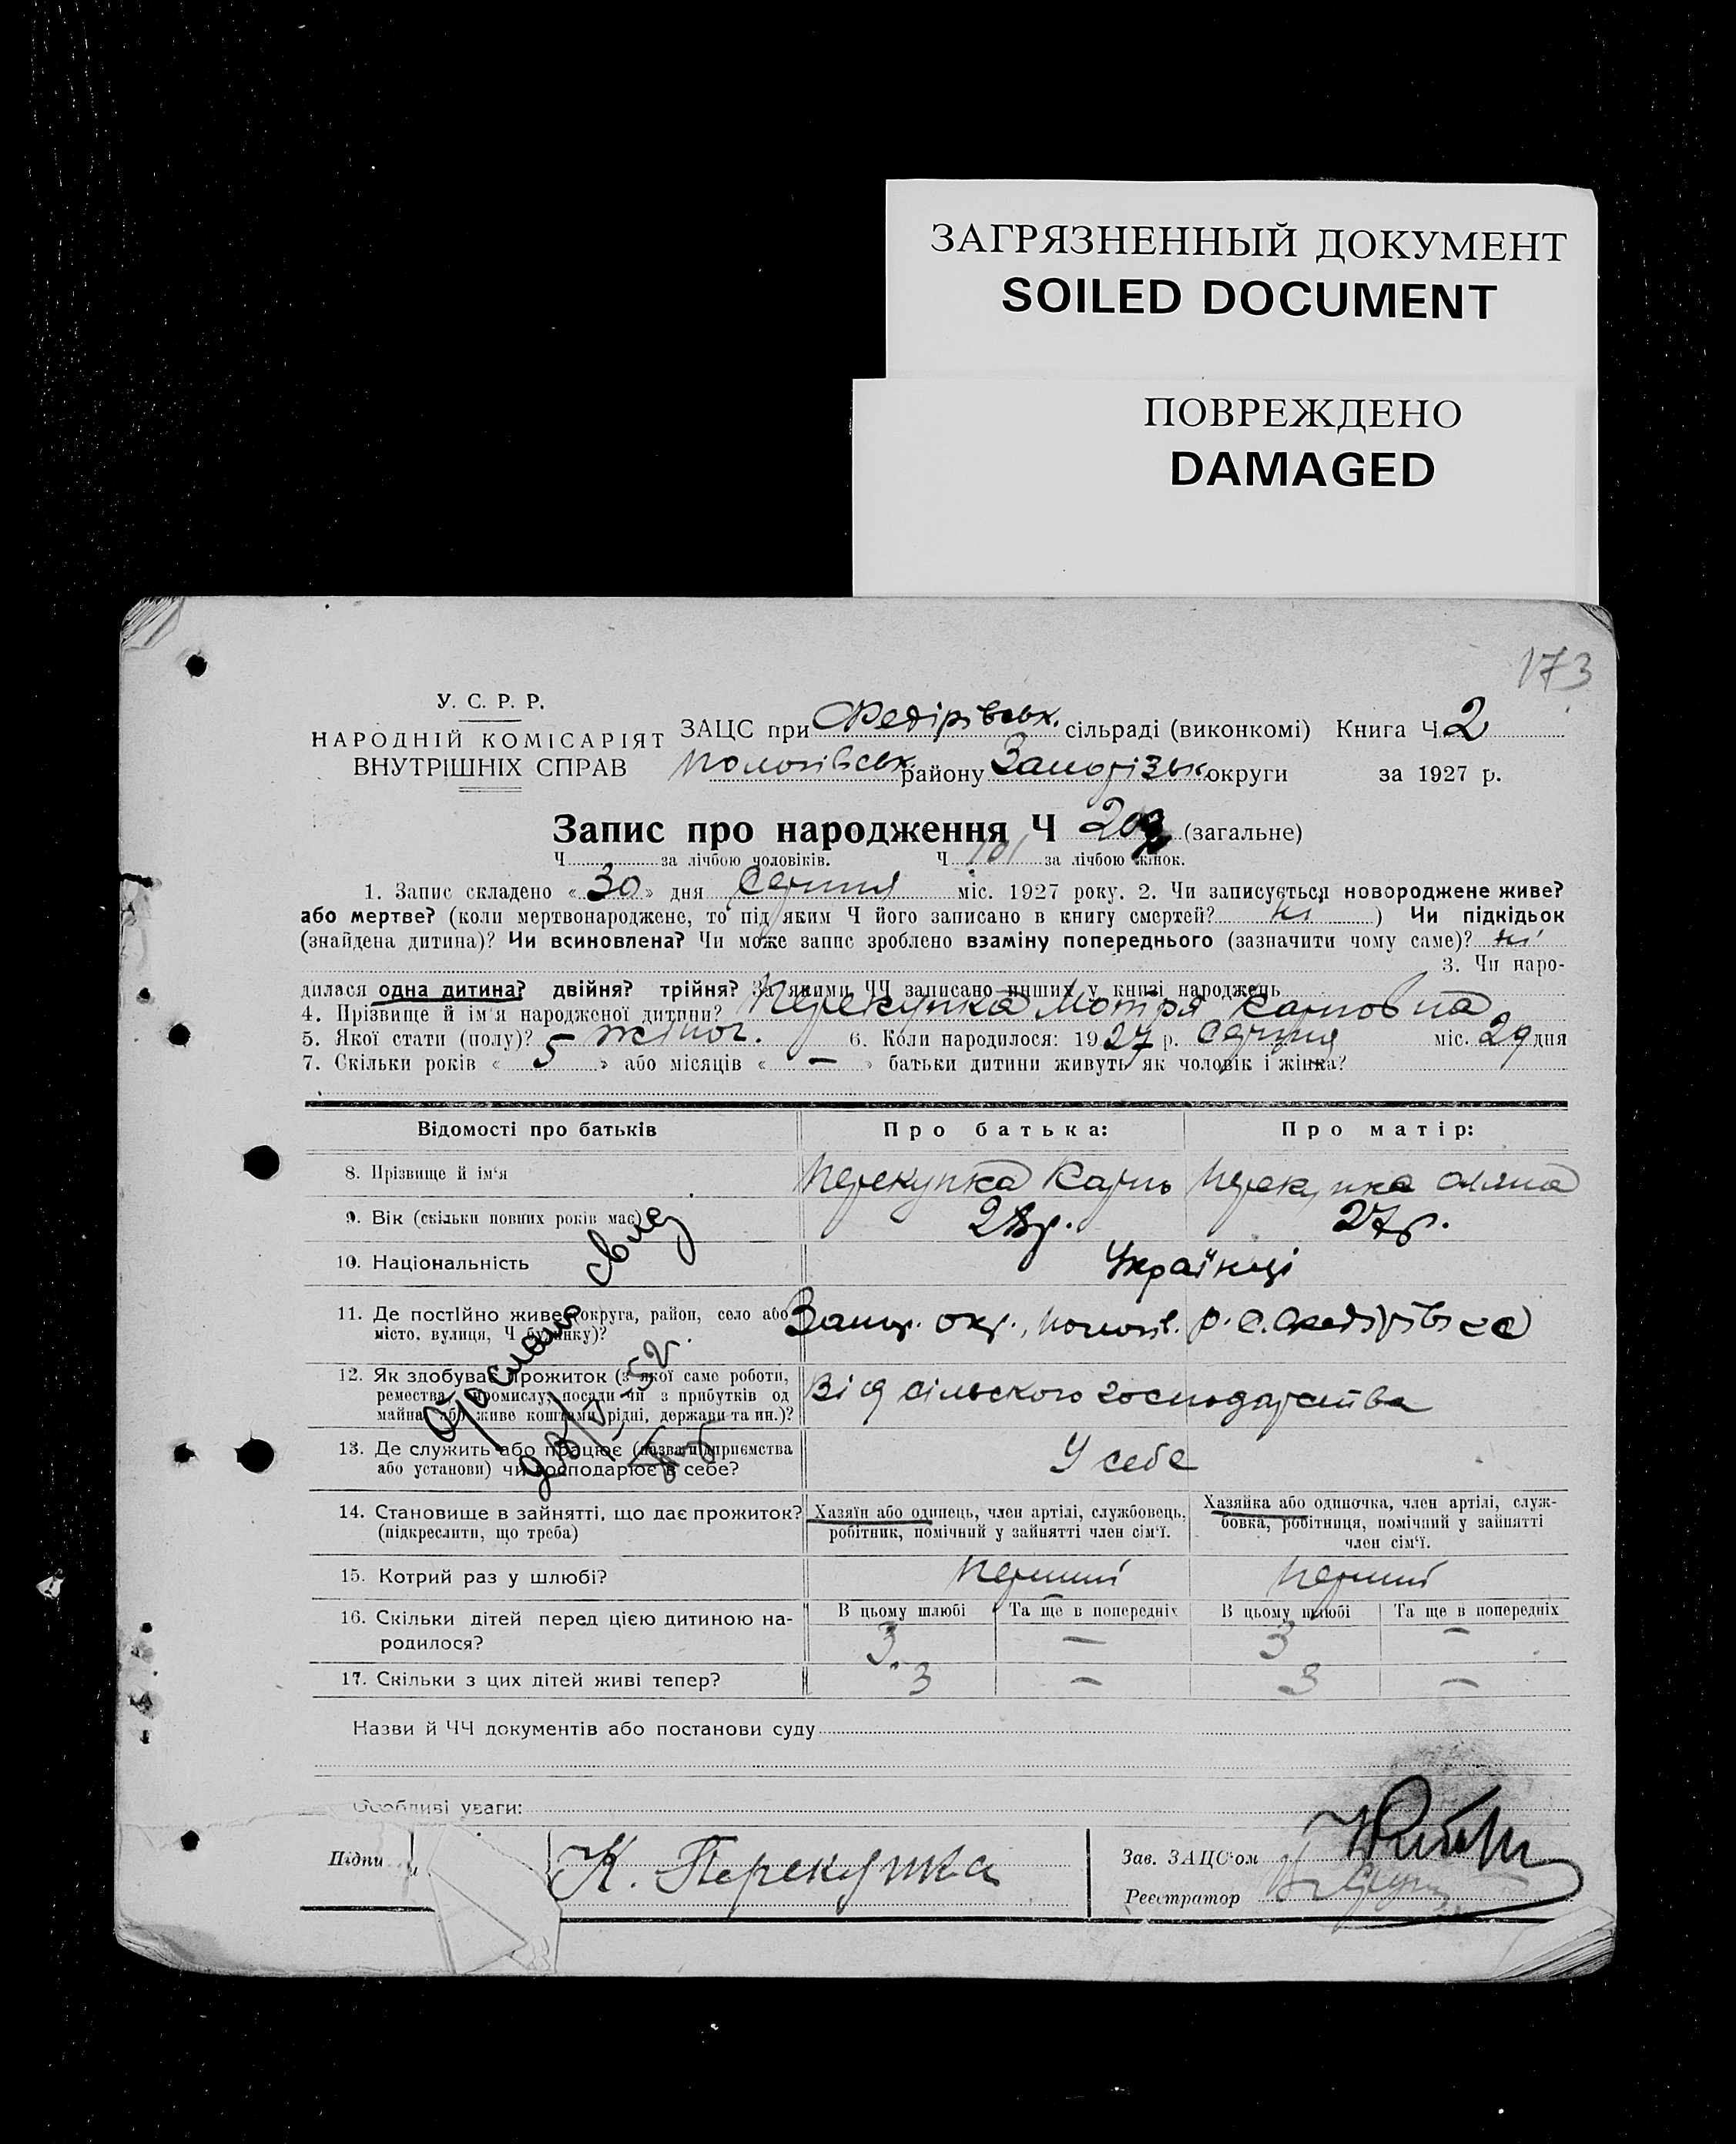 ЗАГРЯЗНЕННЫЙ ДОКУМЕНТ
SOILED DOCUMENT
ПОВРЕЖДЕНО
DAMAGED
173
У. С. Р. Р.
НАРОДНІЙ КОМІСАРІЯТ
ВНУТРІШНІХ СПРАВ
ЗАЦС при Федірівськ. сільраді (виконкомі) Книга Ч 2
Пологівськ. району Запорізьк. округи за 1927 р.
Запис про народження Ч (загальне)
Ч за лічбою чоловіків. Ч 101 за лічбою жінок.
1. Запис складено « 30 » дня Серпня міс. 1927 року. 2. Чи записується новороджене живе?
або мертве? (коли мертвонароджене, то під яким Ч його записано в книгу смертей? ні ) Чи підкідьок
(знайдена дитина)? Чи всиновлена? Чи може запис зроблено взаміну попереднього (зазначити чому саме)? ні
3. Чи наро-
дилася одна дитина? двійня? трійня? За якими ЧЧ записано инших у книзі народжень
4. Прізвище й ім'я народженої дитини? Перекупка Мотря Карповна
5. Якої стати (полу)? жіноч. 6. Коли народилося: 1927 р. Серпня міс. 29 дня
7. Скільки років « 5 » або місяців « — » батьки дитини живуть як чоловік і жінка?
Відомості про батьків Про батька: Про матір:
8. Прізвище й ім'я Перекупка Карпо Перекупка
9. Вік (скільки повних років має) 28р. 27р.
10. Національність Українці
11. Де постійно живе (округа, район, село або
місто, вулиця, Ч будинку)? Запор. окр., Пологів. р. с. Федірівка
12. Як здобуває прожиток (з якої саме роботи,
ремества, промислу, посади чи з прибутків од
майна або живе коштами рідні, держави та ин.)? Від сільского господарства
13. Де служить або працює (назва підприємства
або установи) чи господарює в себе? У себе
14. Становище в зайнятті, що дає прожиток?
(підкреслити, що треба)
Хазяїн або одинець, член артілі, службовець,
робітник, помічний у зайнятті член сім'ї.
Хазяйка або одиночка, член артілі, служ-
бовка, робітниця, помічний у зайнятті
член сім'ї.
15. Котрий раз у шлюбі? Перший Перший
16. Скільки дітей перед цією дитиною на-
родилося?
В цьому шлюбі Та ще в попередніх В цьому шлюбі Та ще в попередніх
3 — 3 —
17. Скільки з цих дітей живі тепер? 3 — 3 —
23/V-52г.
Назви й ЧЧ документів або постанови суду
Особливі уваги:
Підпи
К. Перекупка
Зав. ЗАЦС'ом
Реєстратор